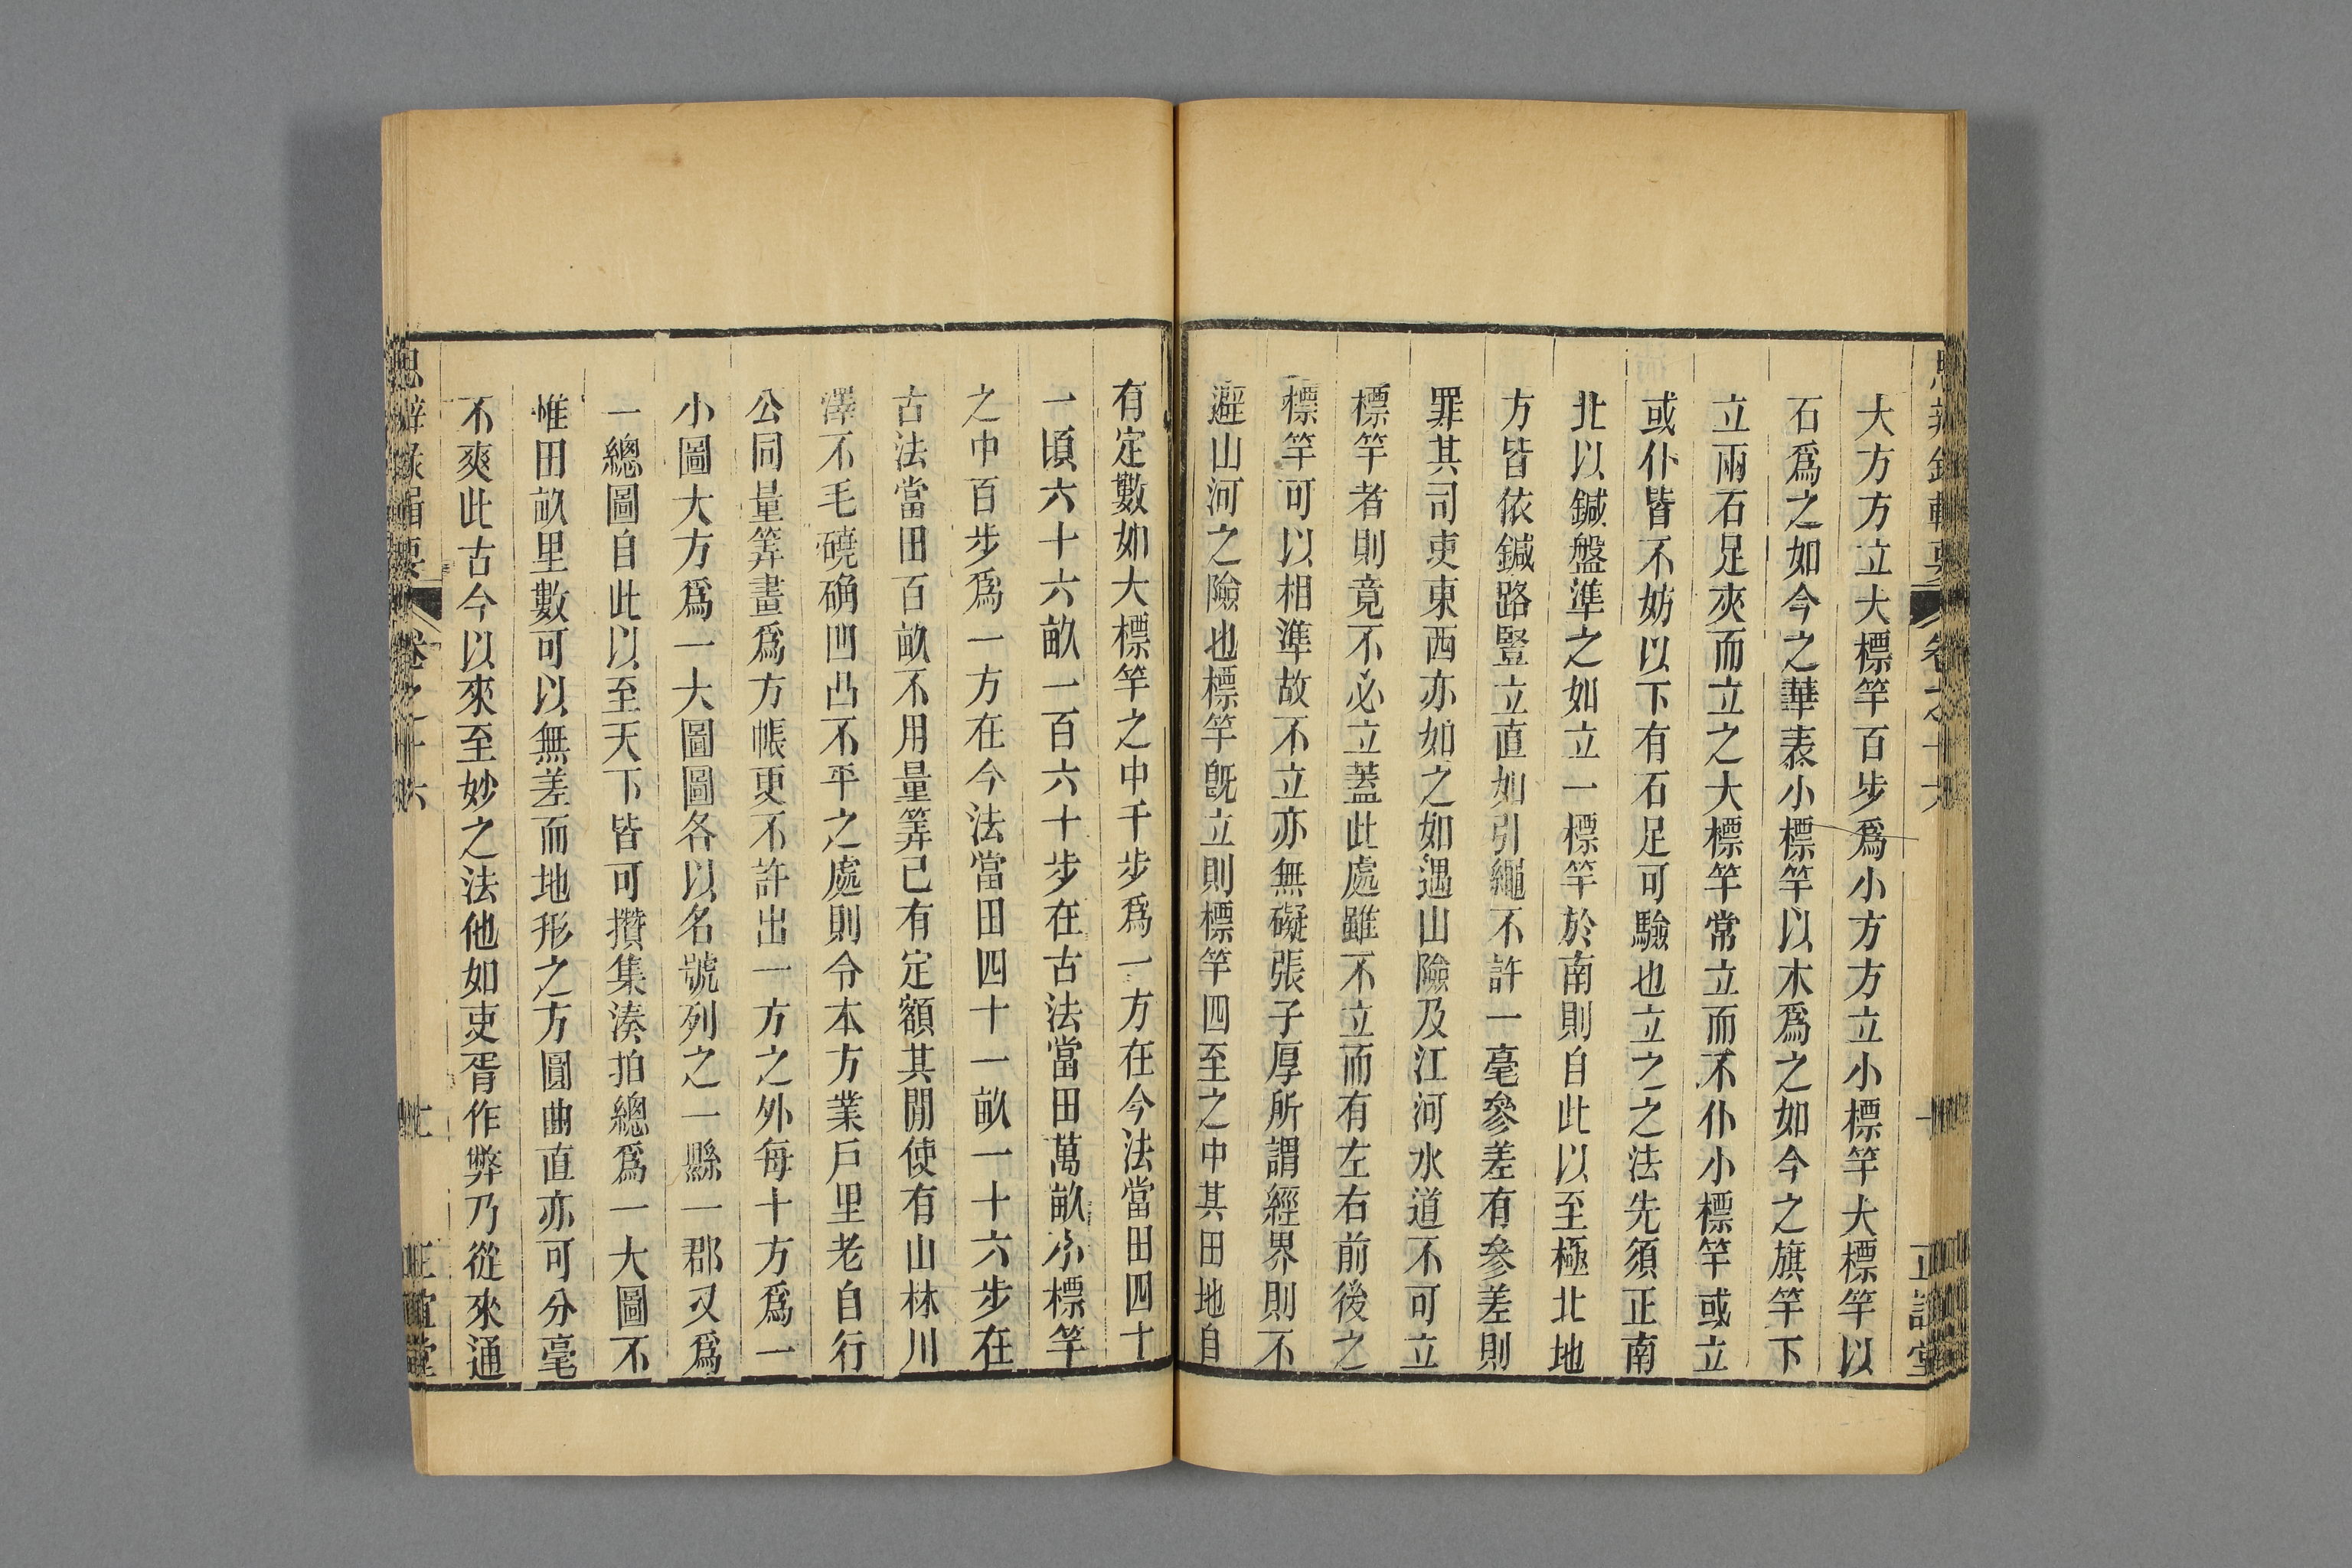 思辨錄輯要 卷之十六 正誼堂
大方方立大標竿百步爲小方方立小標竿大標竿以
石爲之如今之華表小標竿以木爲之如今之旗竿下
立兩石足夾而立之大標竿常立而不仆小標竿或立
或仆皆不妨以下有石足可驗也立之之法先須正南
北以鍼盤準之如立一標竿於南則自此以至極北地
方皆依鍼路豎立直如引繩不許一毫參差有參差則
罪其司吏東西亦如之如遇山險及江河水道不可立
標竿者則竟不必立蓋此處雖不立而有左右前後之
標竿可以相準故不立亦無礙張子厚所謂經界則不
避山河之險也標竿旣立則標竿四至之中其田地自
有定數如大標竿之中千步爲一方在今法當田四十
一頃六十六畝一百六十步在古法當田萬畝小標竿
之中百步爲一方在今法當田四十一畝一十六步在
古法當田百畝不用量筭已有定額其間使有山林川
澤不毛磽确凹凸不平之處則令本方業戶里老自行
公同量筭畫爲方帳更不許出一方之外每十方爲一
小圖大方爲一大圖圖各以名號列之一縣一郡又爲
一總圖自此以至天下皆可攢集湊拍總爲一大圖不
惟田畝里數可以無差而地形之方圓曲直亦可分毫
不爽此古今以來至妙之法他如吏胥作弊乃從來通
思辨錄輯要 卷之十六 正誼堂